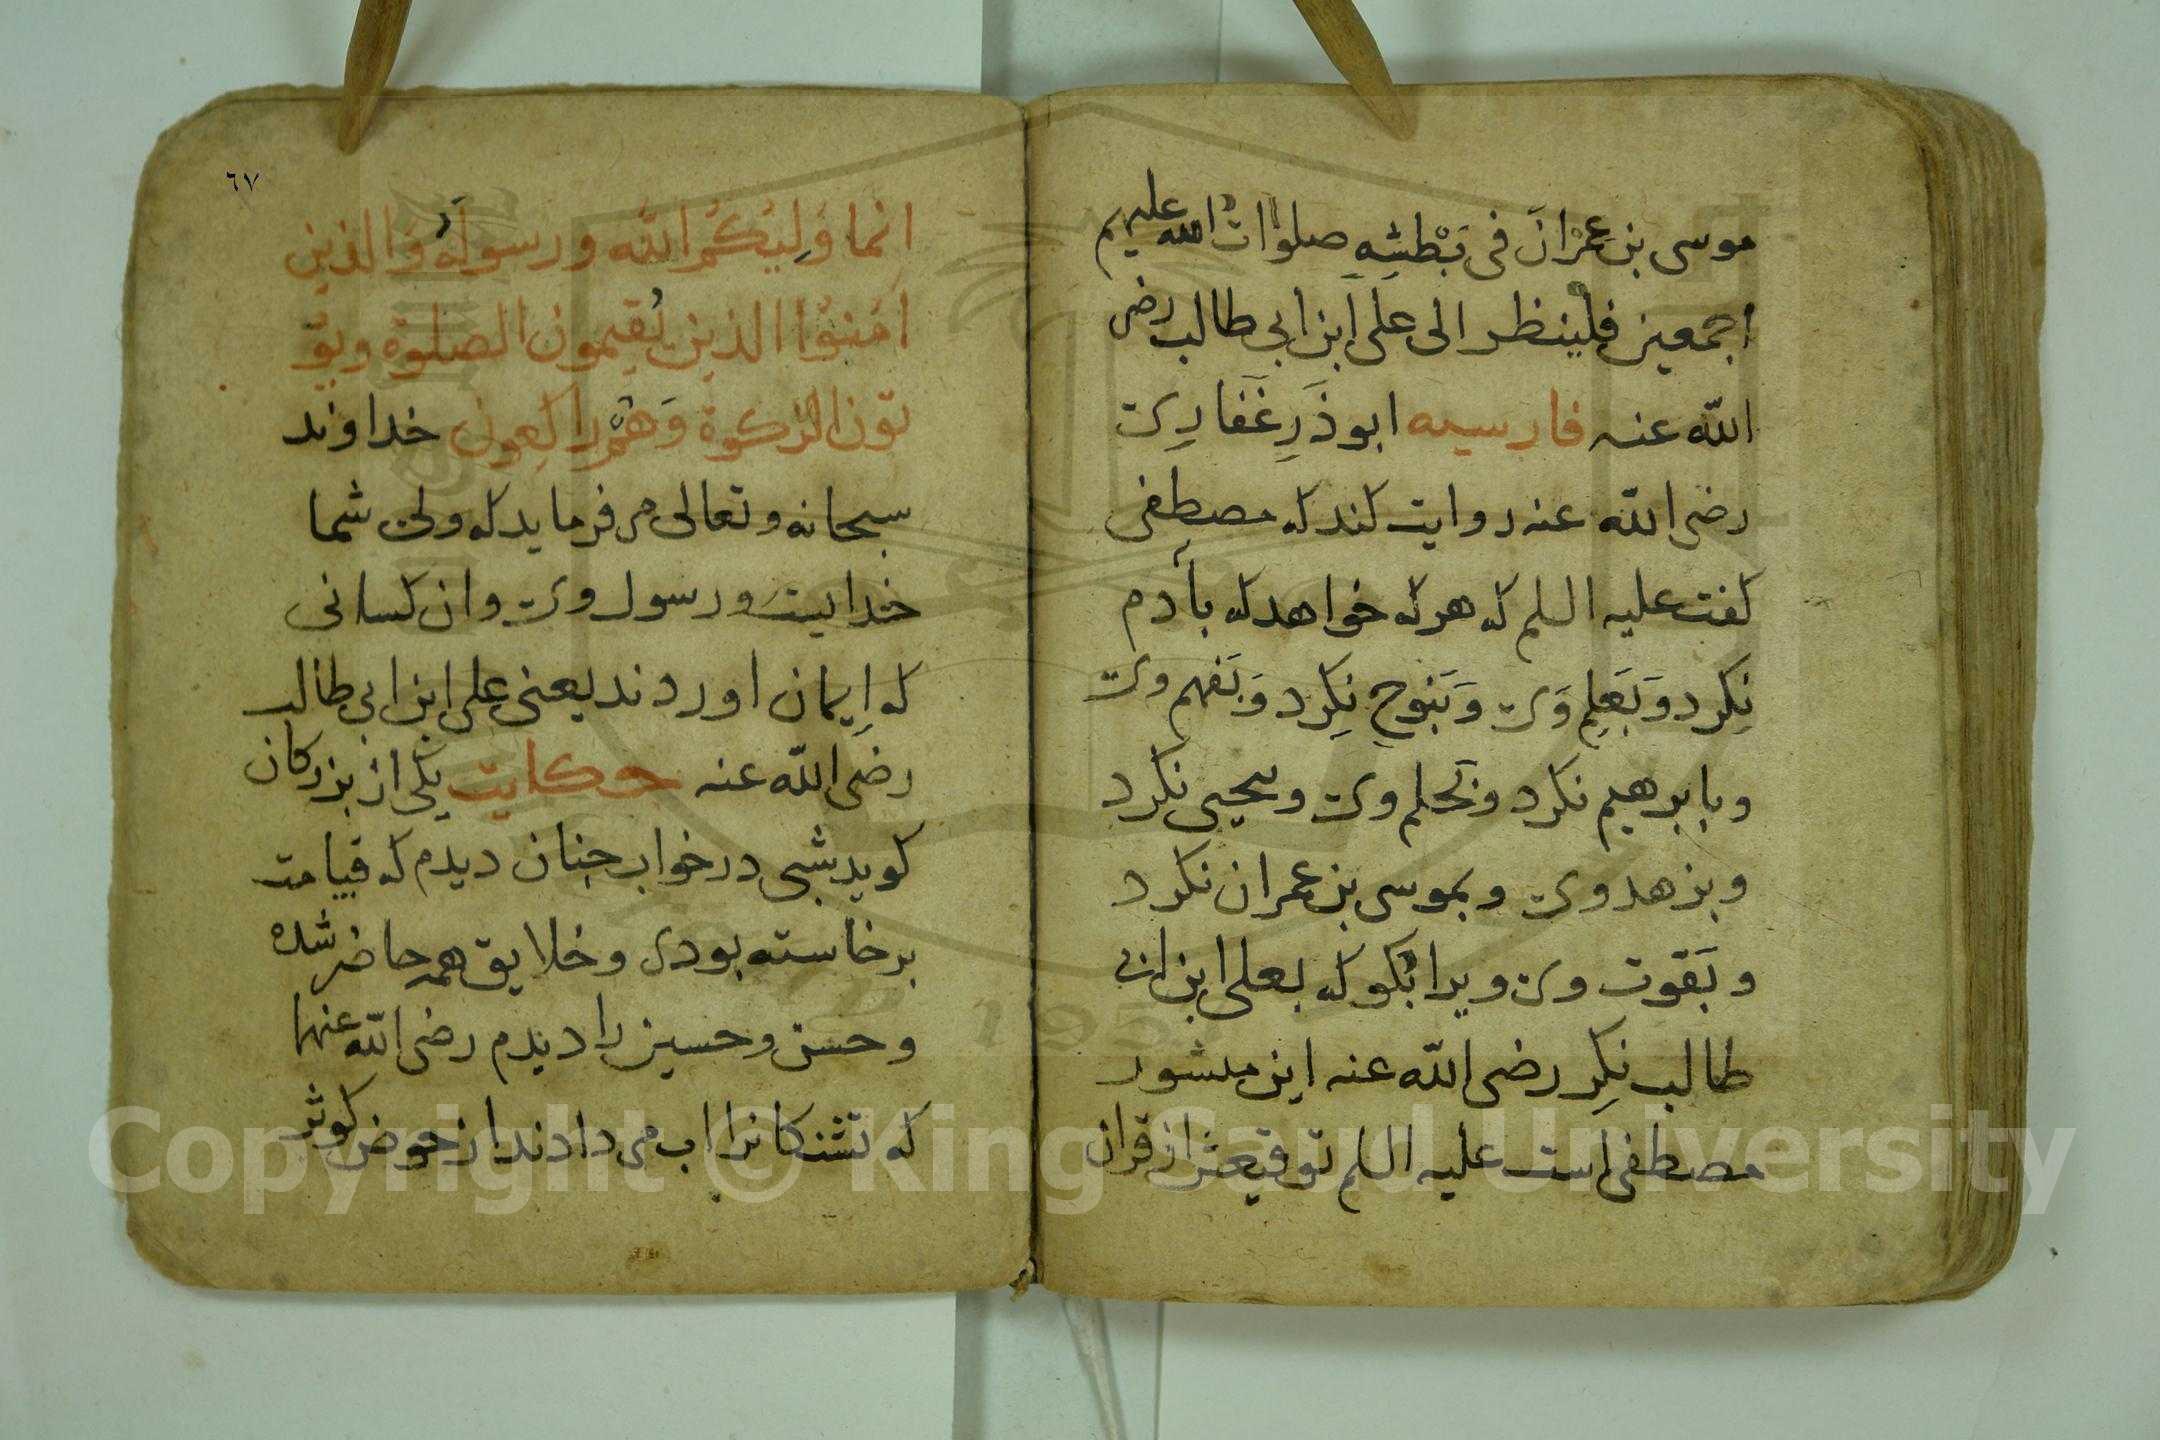 موسى بن عِمْرانَ فى بَطْشِهِ صلواتُ الله عليهم
اجمعين فلينظر الى على ابن ابى طالب رضى
الله عنه فارسيه ابوذَرِ غَفارِى
رضى الله عنه روايت كند كه مصطفى
كفت عليه السلم كه هركه خواهد كه بآدم
نِكرد وَبَعِلمِ وَى وَبَنوحِ نِكرد وَبَفهم وى
وبابرهيم نكرد وبحلم وى وبيحيى نكرد
وبزهد وى وبموسى بن عمران نكرد
وبَقوت وى ويرا بكو كه بعلى ابن ابى
طالب نِكِر رضى الله عنه اين منشور
مصطفى است عليه السلم توقيعش از قران
٦٧
انما وَلِيُكُمُ الله ورسولَهُ وَالذين
امَنوُا الذين يُقيمون الصلوة ويؤ
تون الزكوة وَهُمْ راكِعون خداوند
سبحانه وتعالى مى فرمايد كه ولى شما
خدايست ورسول وى وان كسانى
كه اِيمان اوردند يعنى على ابن ابى طالب
رضى الله عنه حكايت يكى از بزركان
كويد شبى در خواب چنان ديدم كه قيامت
برخاسته بودى وخلايق همه حاضر شده
وحسن وحسين را ديدم رضى الله عنهما
كه تشنكانرا اب مى دادند از حوض كوثر
Copyright © King Saud University
195